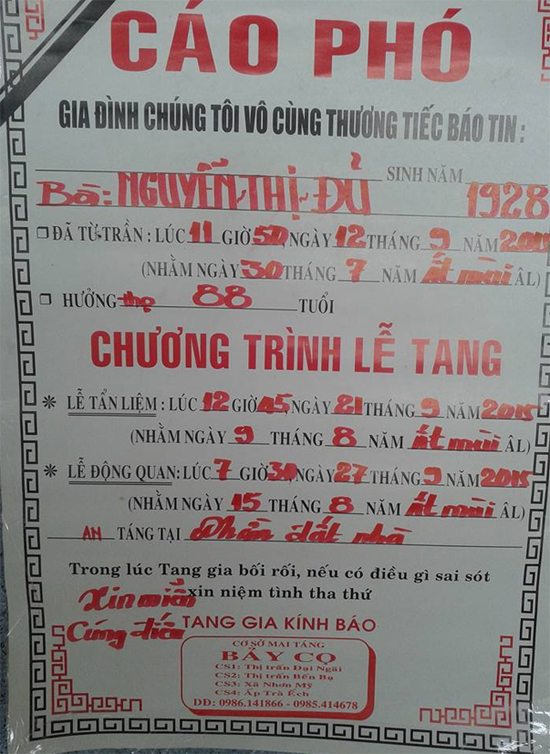 CÁO PHÓ
GIA ĐÌNH CHÚNG TÔI VÔ CÙNG THƯƠNG TIẾC BÁO TIN :
Bà: NGUYỄN-THỊ-ĐỦ SINH NĂM 1928
ĐÃ TỪ TRẦN : LÚC 11 GIỜ 50, NGÀY 12 THÁNG 9 NĂM 2015
(NHẰM NGÀY 30 THÁNG 7 NĂM Ất mùi ÂL)
HƯỞNG thọ 88 TUỔI
CHƯƠNG TRÌNH LỄ TANG
* LỄ TẨN LIỆM : LÚC 12 GIỜ 15, NGÀY 21 THÁNG 9 NĂM 2015
(NHẰM NGÀY 9 THÁNG 8 NĂM Ất mùi ÂL)
* LỄ ĐỘNG QUAN: LÚC 7 GIỜ 30, NGÀY 27 THÁNG 9 NĂM 2015
(NHẰM NGÀY 15 THÁNG 8 NĂM Ất mùi ÂL)
AN TÁNG TẠI Phần đất nhà
Trong lúc Tang gia bối rối, nếu có điều gì sai sót
xin niệm tình tha thứ
Xin miễn
Cúng điếu
TANG GIA KÍNH BÁO
CƠ SỞ MAI TÁNG
BẢY CỌ
CS1: Thị trấn Đại Ngãi
CS2: Thị trấn Bến Bạ
CS3: Xã Nhơn Mỹ
CS4: Ấp Trà Ếch
DĐ: 0986.141866 - 0985.414678